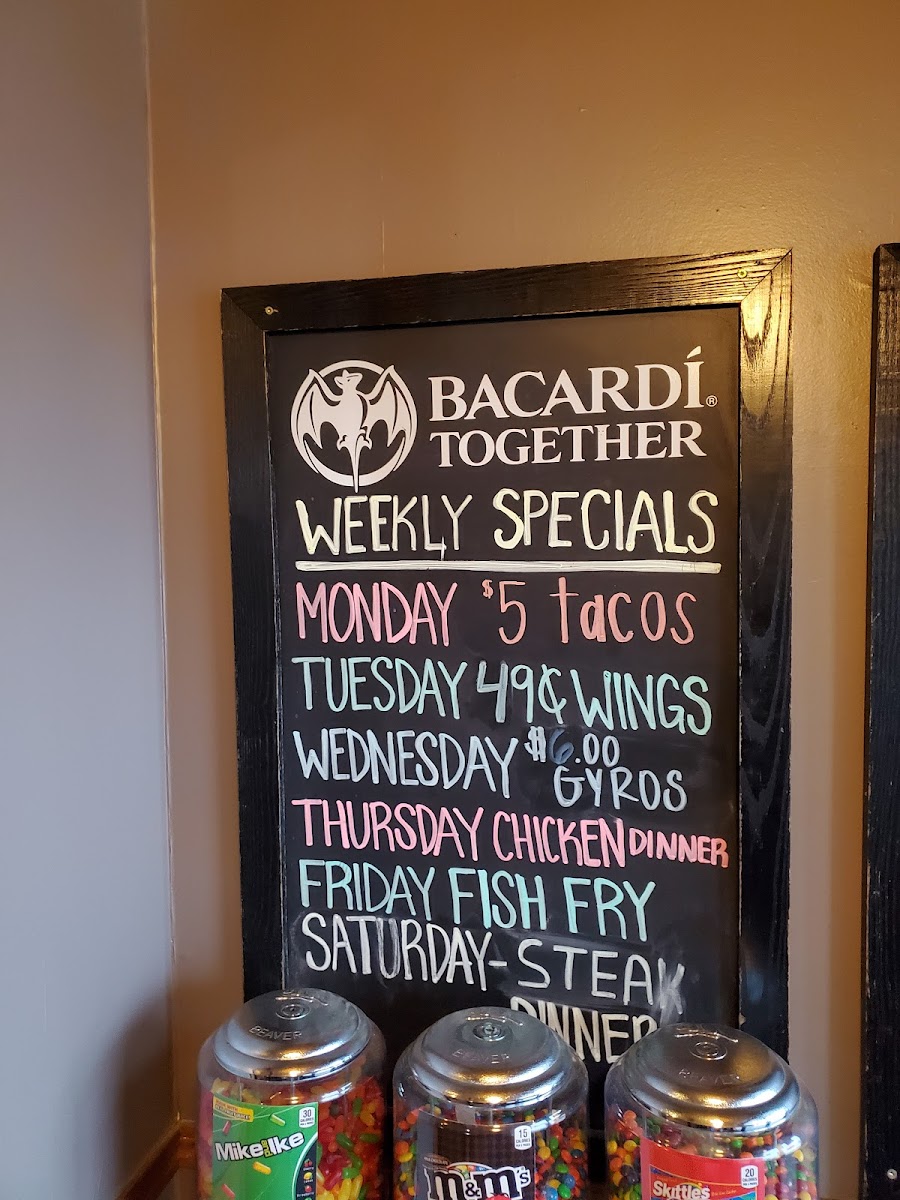 BACARDÍ®
TOGETHER
WEEKLY SPECIALS
MONDAY $5 tacos
TUESDAY 49¢ WINGS
WEDNESDAY $6.00
GYROS
THURSDAY CHICKEN DINNER
FRIDAY FISH FRY
SATURDAY-STEAK
DINNER
BEAVER
BEAVER
BEAVER
30
CALORIES
Mike and Ike
15
CALORIES
m&m's
20
CALORIES
Skittles